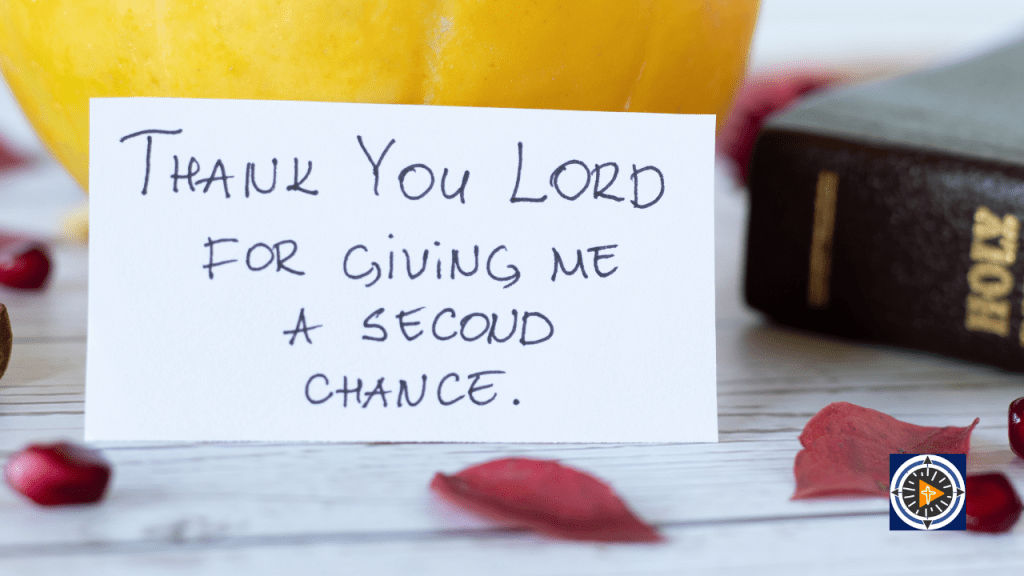 THANK YOU LORD
FOR GIVING ME
A SECOND
CHANCE.
HOLY